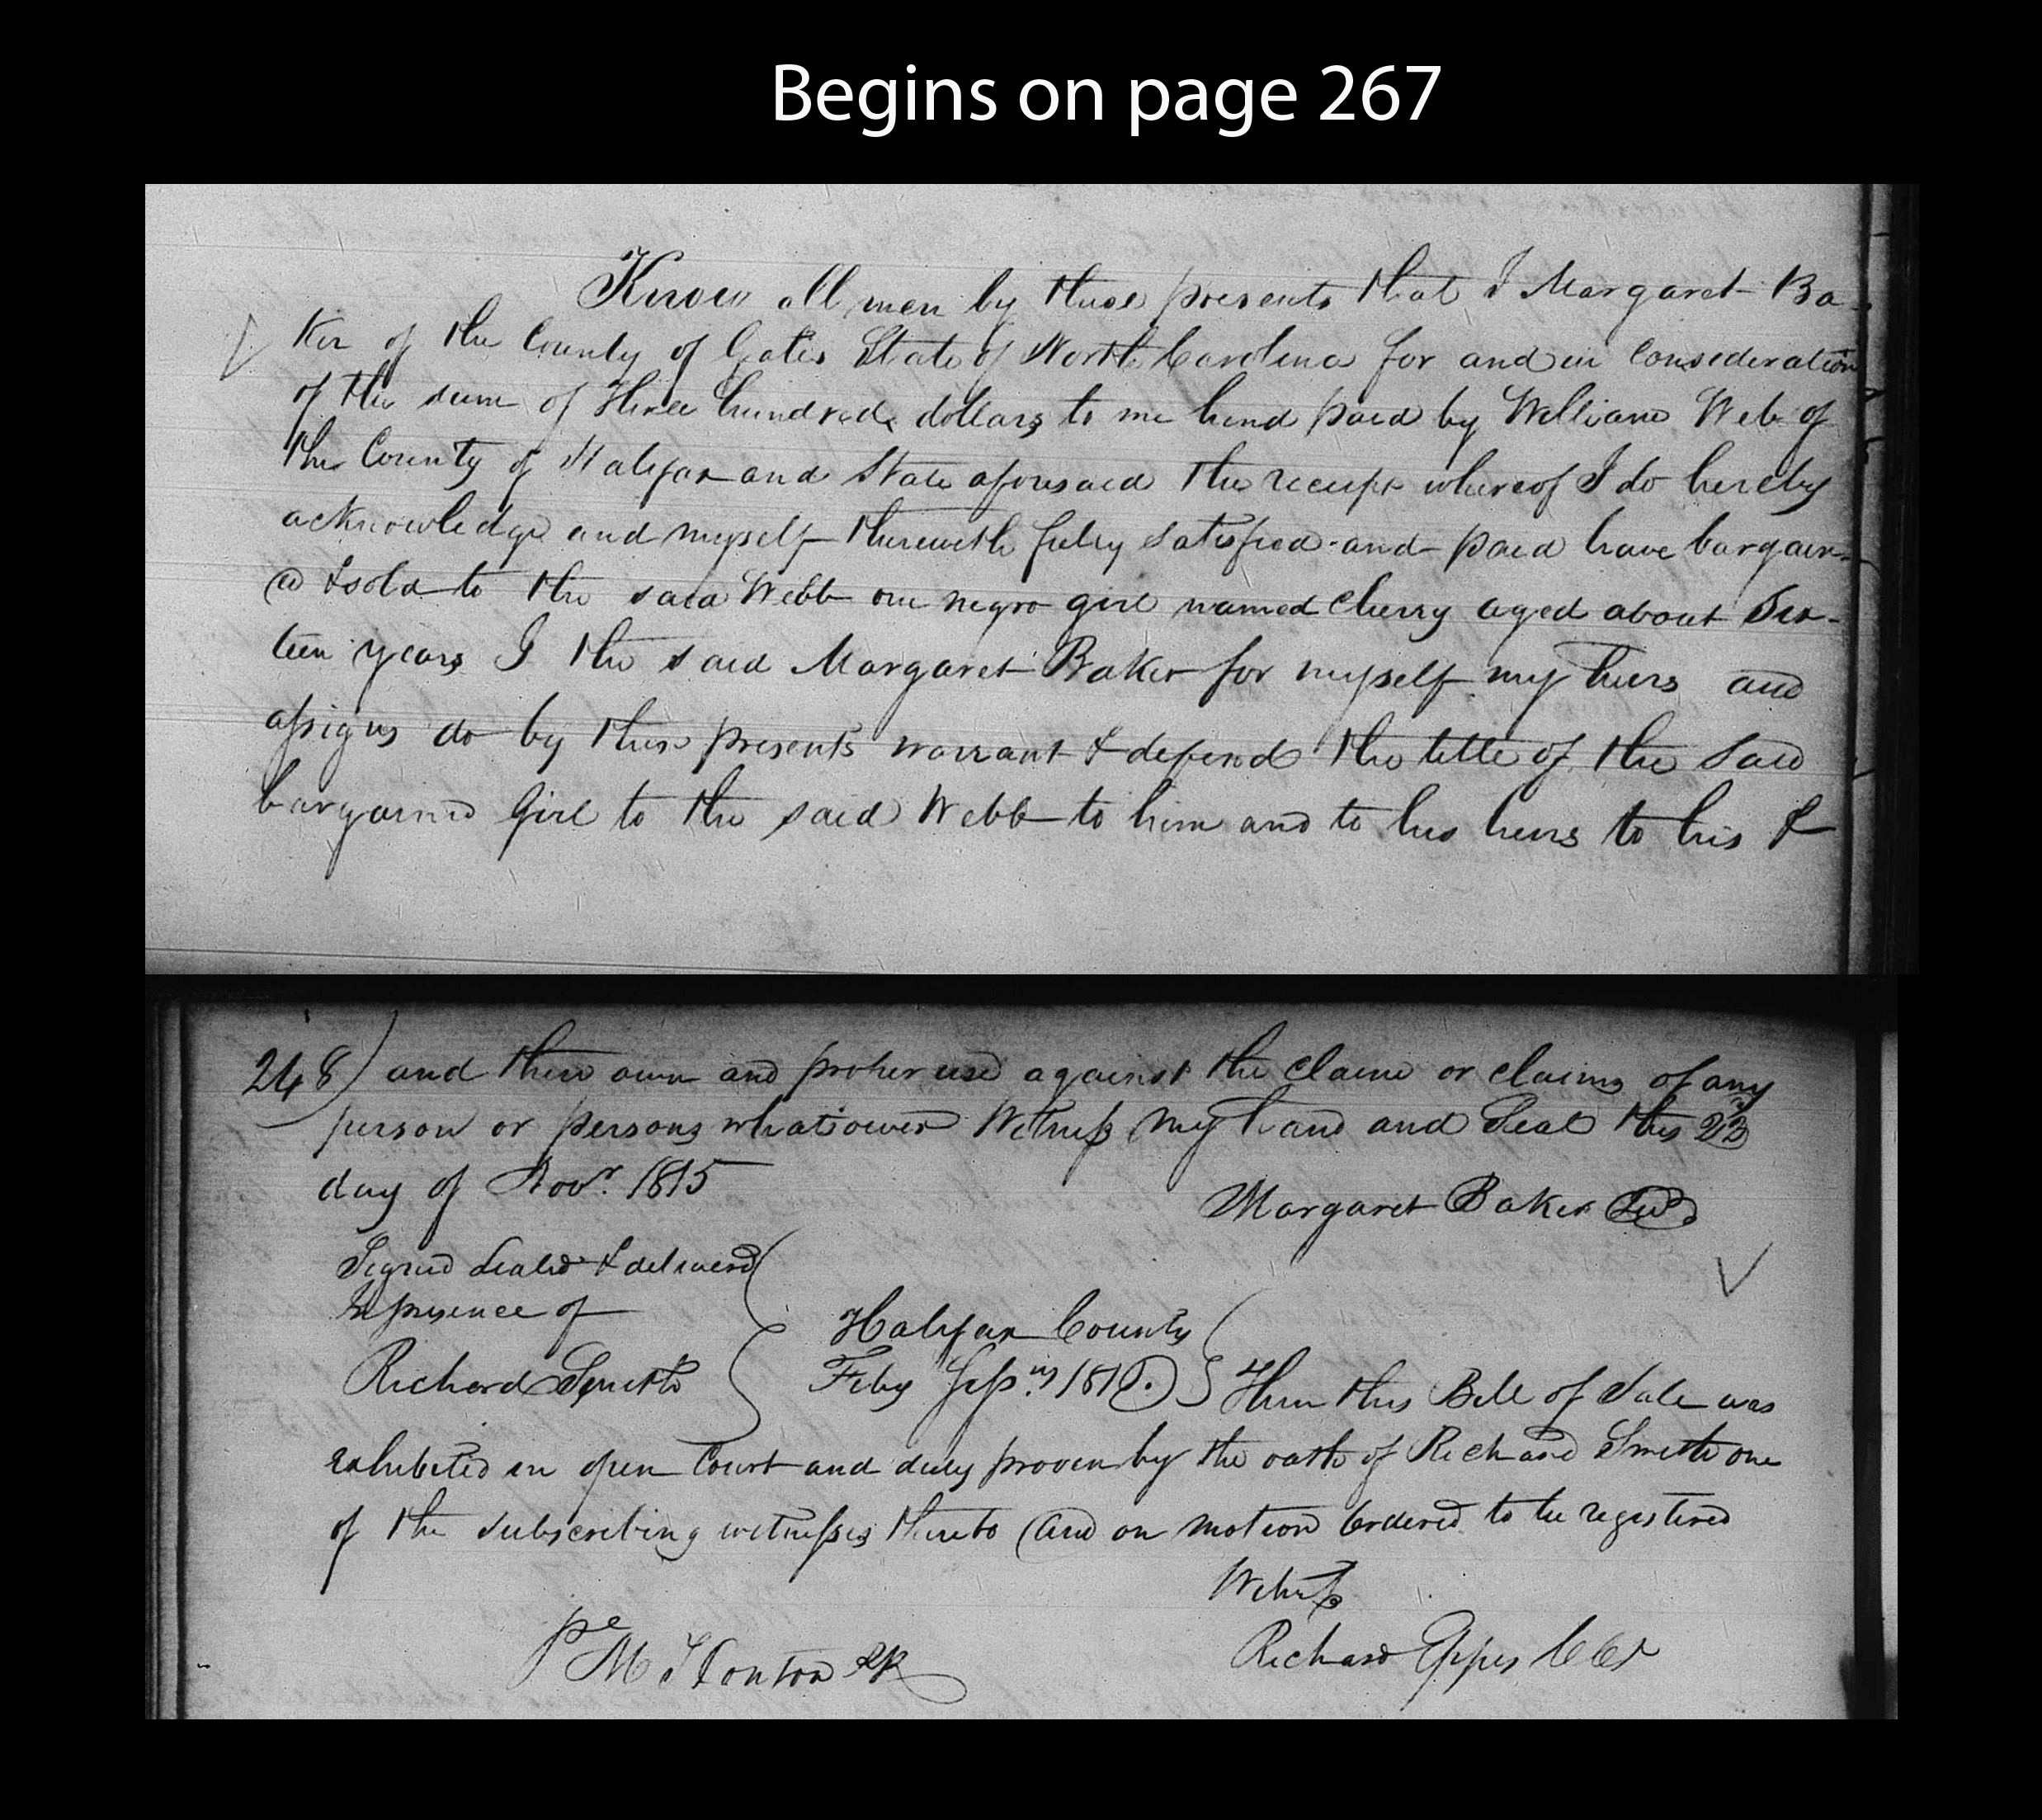 Begins on page 267
Know all men by these presents that I Margaret Ba-
ker of the County of Gates State of North Carolina for and in Consideration
of the sum of Three hundred dollars to me hand paid by William Web of
the County of Halifax and State aforesaid the receipt whereof I do hereby
acknowledge and myself therewith fully satisfied and paid have bargain-
ed & sold to the said Webb one negro girl named Cherry aged about Six-
teen years I the said Margaret Baker for myself my heirs and
assigns do by these presents warrant & defend the title of the said
bargained Girl to the said Webb to him and to his heirs to his &
248) and their own and proper use against the claim or claims of any
person or persons whatsoever Witness my hand and Seal this 22
day of Novr. 1815
Margaret Baker Seal
Signed Sealed & deliverd
In presence of
Richard Smith
Halifax County
Feby Sessn. Then this Bill of Sale was
exhibited in open Court and duly proven by the oath of Richard Smith one
of the subscribing witnesses thereto and on motion Ordered to be registered
Witness
pe M Conton PR
Richard Eppes CCt